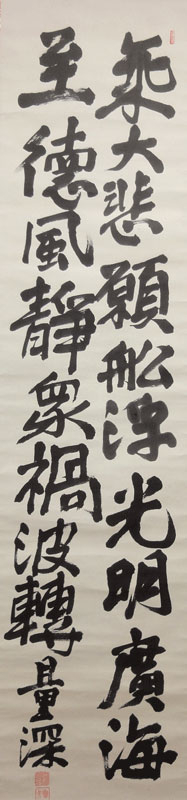 乘大悲願船浮光明廣海
至德風靜衆禍波轉 量深